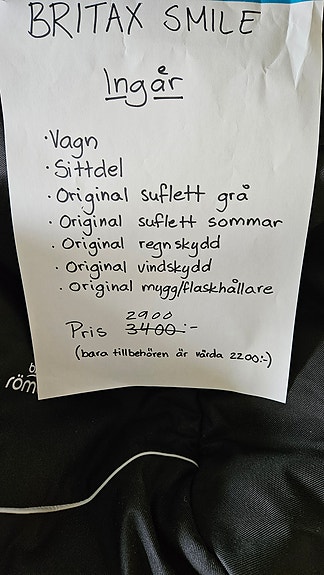 BRITAX SMILE
Ingår
·Vagn
·Sittdel
·Original suflett grå
·Original suflett sommar
·Original regnskydd
·Original vindskydd
·Original mygg/flaskhållare
2900
Pris 3400:-
(bara tillbehören är värda 2200:-)
röm